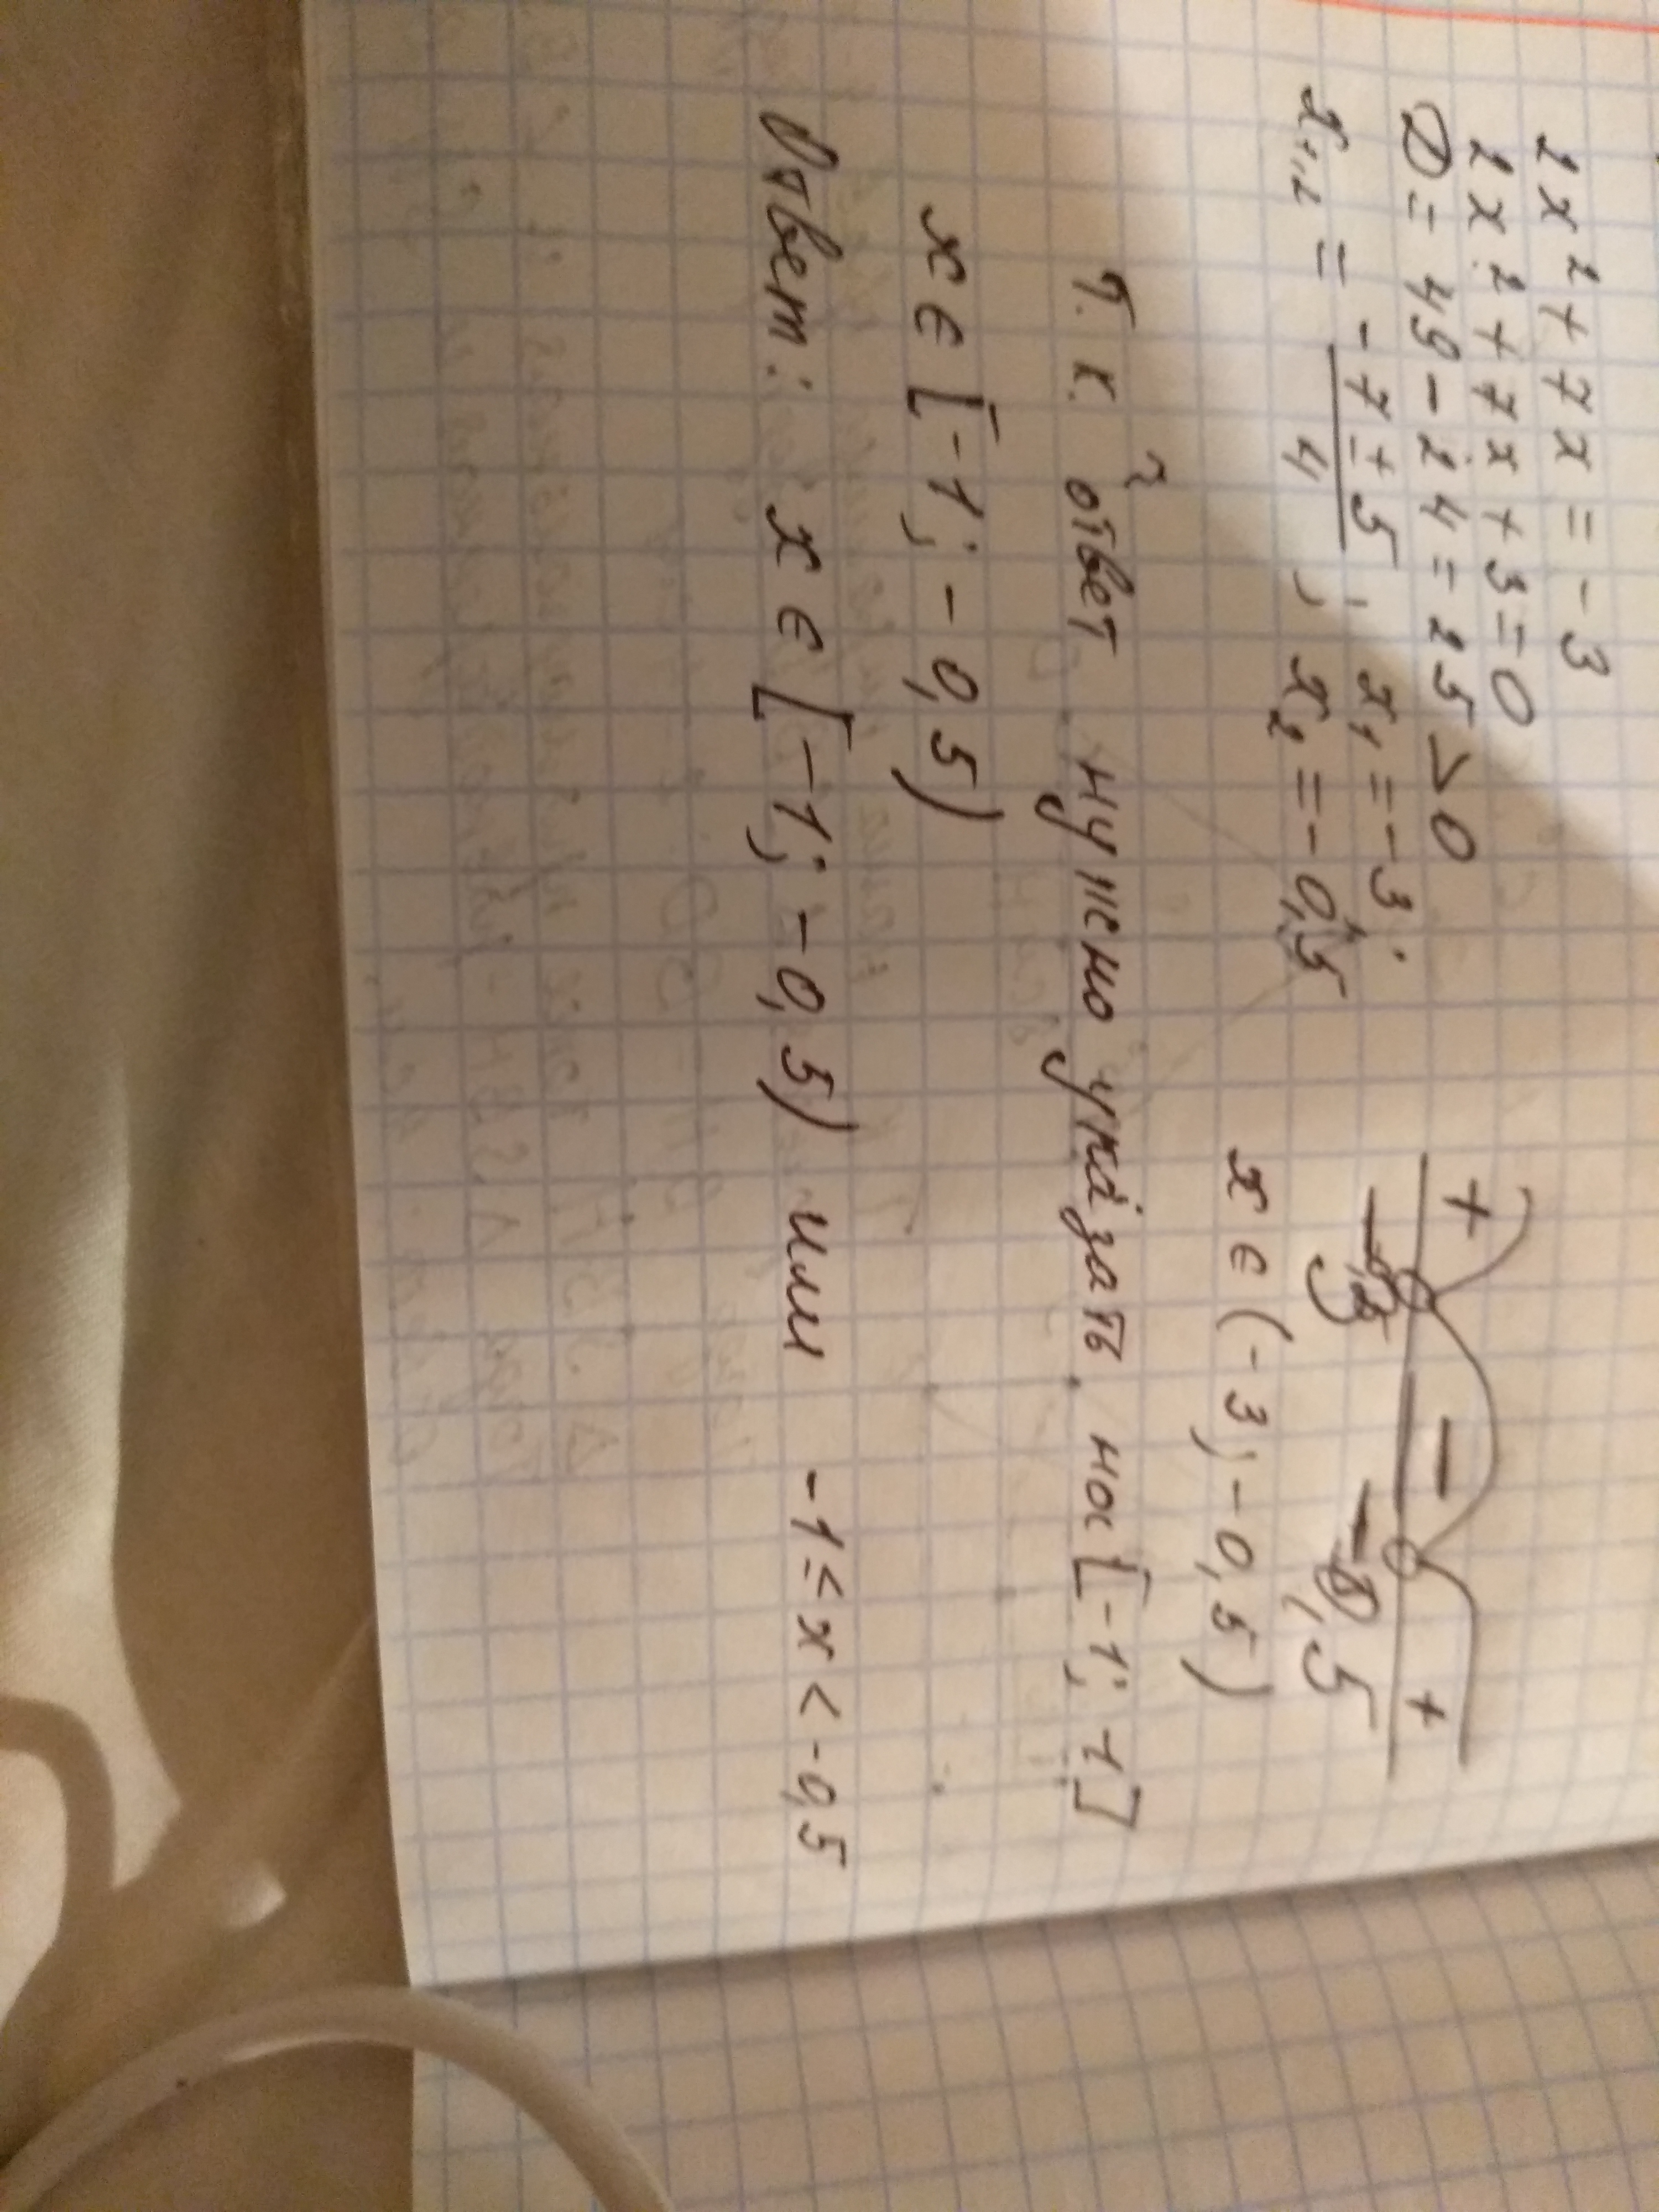 2x² + 7x = -3
2x² + 7x + 3 = 0
D = 49 - 24 = 25 > 0
x₁,₂ = (-7 ± 5)/4 ; x₁ = -3; x₂ = -0,5
+ - +
-3 -0,5
x ∈ (-3; -0,5)
Т.к. ответ нужно указать на [-1; 1]
x ∈ [-1; -0,5)
Ответ: x ∈ [-1; -0,5) или -1 ≤ x < -0,5